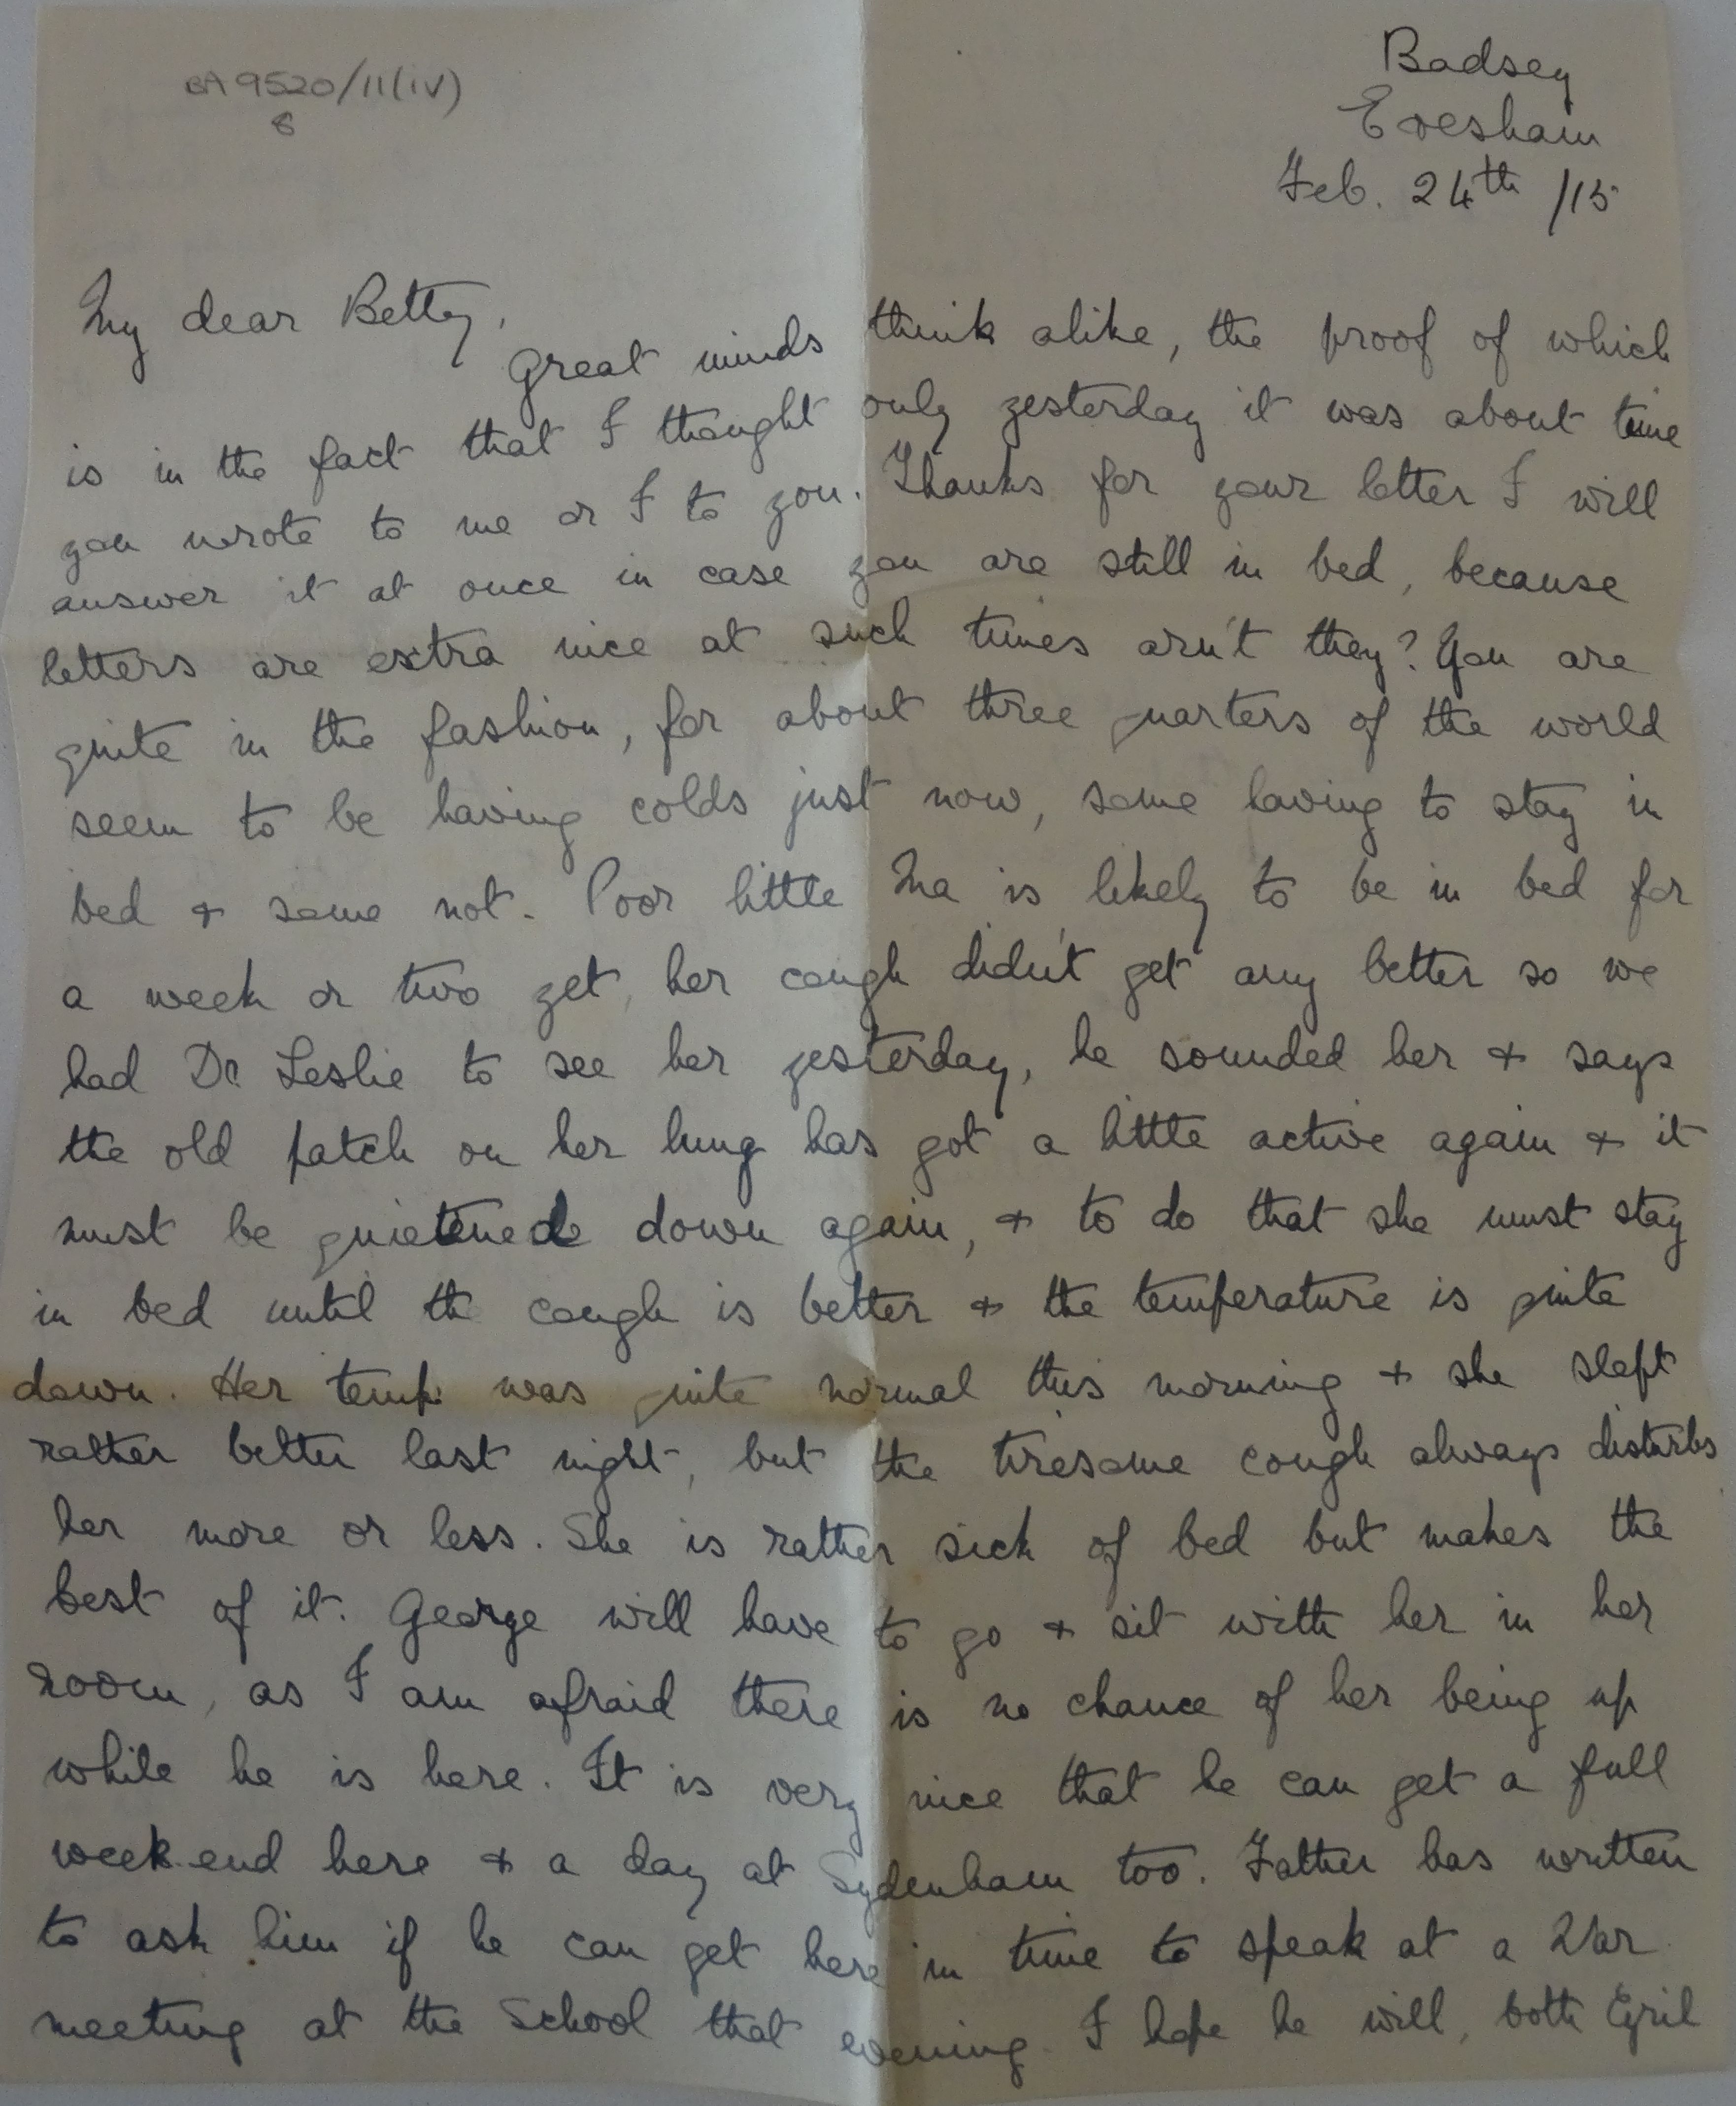 BA 9520/11(iv)
8
Badsey
Evesham
Feb. 24th /15
My dear Betty,
Great minds think alike, the proof of which
is in the fact that I thought only yesterday it was about time
you wrote to me or I to you. Thanks for your letter I will
answer it at once in case you are still in bed, because
letters are extra nice at such times arn't they? You are
quite in the fashion, for about three quarters of the world
seem to be having colds just now, some having to stay in
bed & some not. Poor little Ma is likely to be in bed for
a week or two yet, her cough didn't get any better so we
had Dr Leslie to see her yesterday, he sounded her & says
the old patch on her lung has got a little active again & it
must be quietened down again, & to do that she must stay
in bed until the cough is better & the temperature is quite
down. Her temp: was quite normal this morning & she slept
rather better last night, but the tiresome cough always disturbs
her more or less. She is rather sick of bed but makes the
best of it. George will have to go & sit with her in her
room, as I am afraid there is no chance of her being up
while he is here. It is very nice that he can get a full
week-end here & a day at Sydenham too. Father has written
to ask him if he can get here in time to speak at a War
meeting at the School that evening. I hope he will, both Cyril